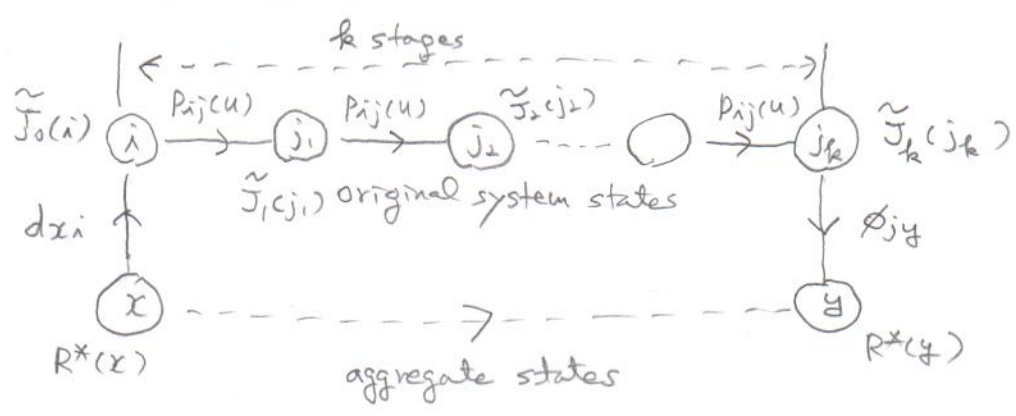 k stages
J̃₀(i) i Pij(u) j₁ Pij(u) j₂ J̃₂(j₂) Pij(u) jₖ J̃ₖ(jₖ)
J̃₁(j₁) original system states
dxi ϕjy
x y
R*(x) R*(y)
aggregate states